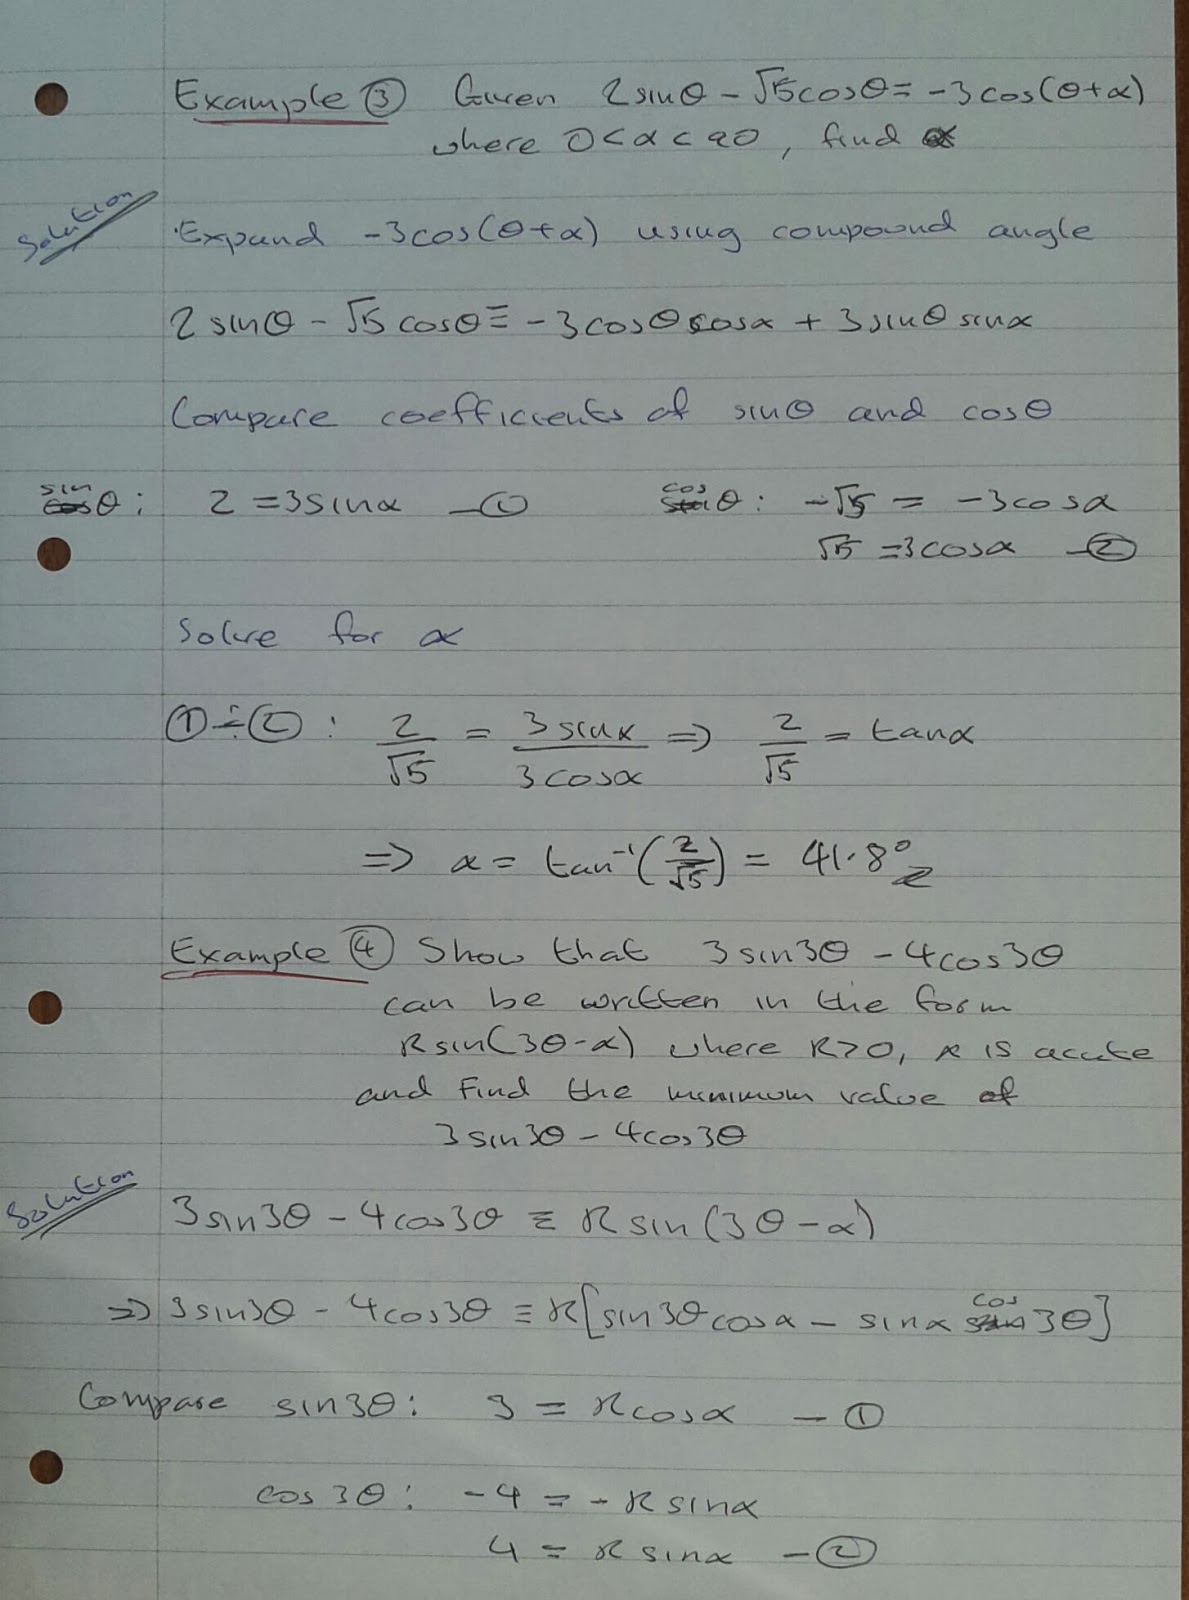 Example ③ Given 2sinθ - √5cosθ = -3cos(θ+α)
where 0<α<90, find α
Solution
Expand -3cos(θ+α) using compound angle
2sinθ - √5cosθ ≡ -3cosθcosα + 3sinθsinα
Compare coefficients of sinθ and cosθ
sinθ: 2 = 3sinα —① cosθ: -√5 = -3cosα
√5 = 3cosα —②
Solve for α
①÷②: 2/√5 = 3sinα/3cosα ⇒ 2/√5 = tanα
⇒ α = tan⁻¹(2/√5) = 41.8°
Example ④ Show that 3sin3θ - 4cos3θ
can be written in the form
Rsin(3θ-α) where R>0, α is acute
and find the minimum value of
3sin3θ - 4cos3θ
Solution
3sin3θ - 4cos3θ ≡ Rsin(3θ-α)
⇒ 3sin3θ - 4cos3θ ≡ R[sin3θcosα - sinαcos3θ]
Compare sin3θ: 3 = Rcosα —①
cos3θ: -4 = -Rsinα
4 = Rsinα —②